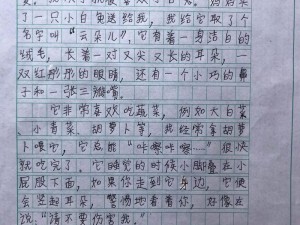 了一只小白兔送给我，我给它取了个
名字叫“一朵儿”，它有着一身洁白的
绒毛，长着一对又尖又长的耳朵，一
双红彤彤的眼睛，还有一个小巧的鼻
子和一张三瓣嘴。
它非常喜欢吃蔬菜，例如大白菜
、小青菜、胡萝卜等，我经常拿胡萝
卜喂它，它总能“咔嚓咔嚓……”很快
就吃完了。它睡觉的时候小脚叠在小
屁股下面，如果你走到它身边，它便
会竖起耳朵，警惕地看着你，好像在
说：“请不要伤害我。”